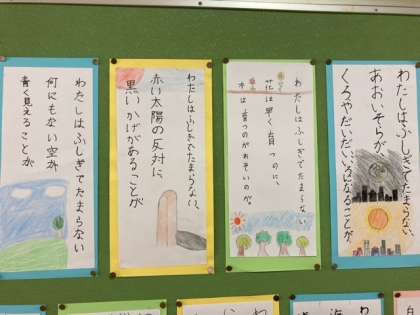 わたしはふしぎでたまらない、
あおいそらが、
くろやだいだいいろになることが。
わたしはふしぎでたまらない
花は早く育つのに、
木は育つのがおそいのが。
わたしはふしぎでたまらない、
赤い太陽の反対に
黒いかげがあることが
わたしはふしぎでたまらない
何にもない空が
青く見えることが